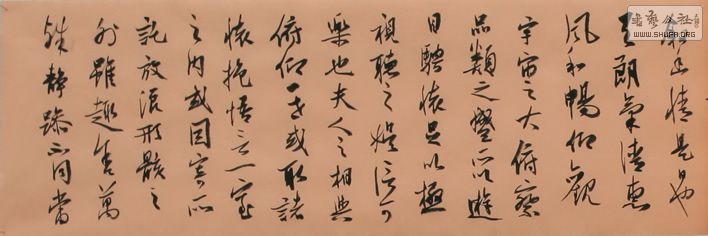 幽情是日也
天朗氣清惠
風和暢仰觀
宇宙之大俯察
品類之盛所以遊
目騁懷足以極
視聽之娛信可
樂也夫人之相與
俯仰一世或取諸
懷抱悟言一室
之內或因寄所
託放浪形骸之
外雖趣舍萬
殊靜躁不同當
WWW.SHUFA.ORG